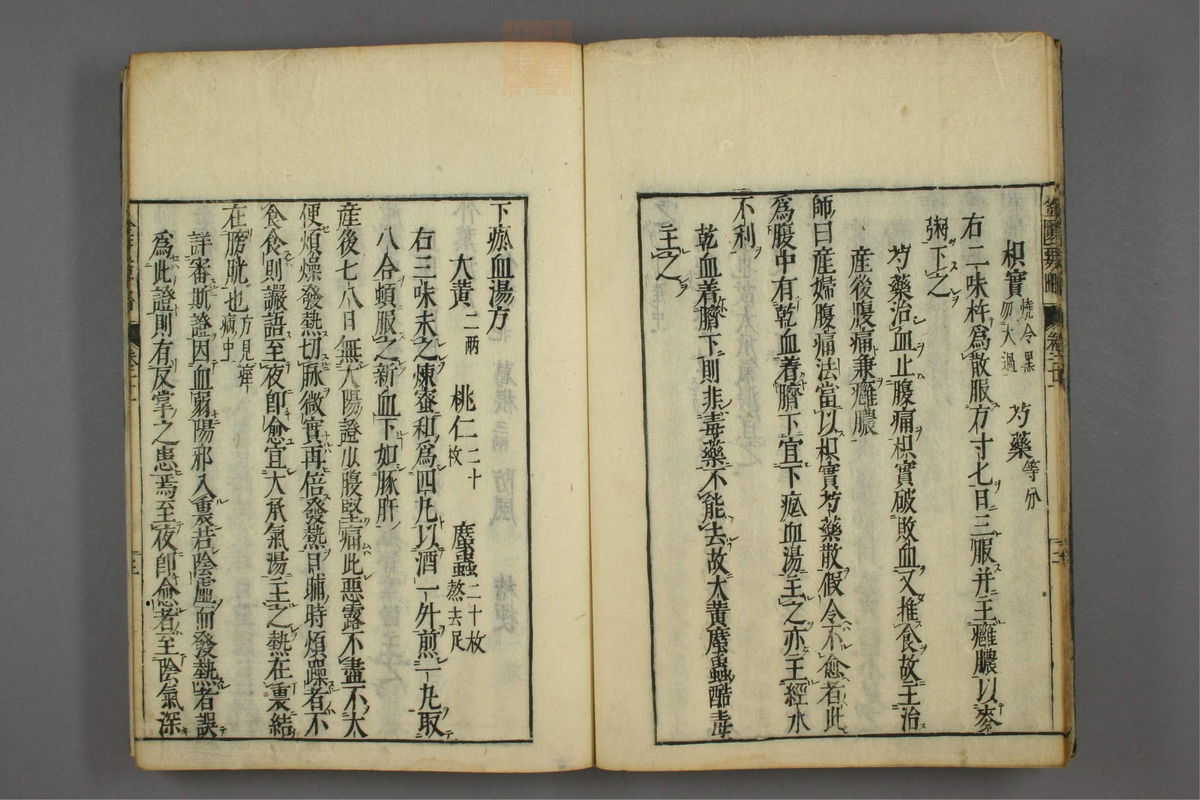 枳實燒令黑勿大過 芍藥等分
右二味杵爲散服方寸匕日三服并主癰膿以麥
粥下之
芍藥治血止腹痛枳實破敗血又推食故主治
產後腹痛兼癰膿
師曰產婦腹痛法當以枳實芍藥散假令不愈者此
爲腹中有乾血着臍下宜下瘀血湯主之亦主經水
不利
乾血着臍下則非毒藥不能去故大黃䗪蟲酷毒
主之
下瘀血湯方
大黃二兩 桃仁二十枚 䗪蟲二十枚熬去足
右三味末之煉蜜和爲四丸以酒一升煎一丸取
八合頓服之新血下如豚肝
產後七八日無太陽證少腹堅痛此惡露不盡不大
便煩燥發熱切脉微實再倍發熱日晡時煩躁者不
食食則讝語至夜卽愈宜大承氣湯主之熱在裏結
在膀胱也方見痙病中
詳審斯證因血弱陽邪入裏若陰虛而發熱者誤
爲此證則有反掌之患焉至夜卽愈者至陰氣深